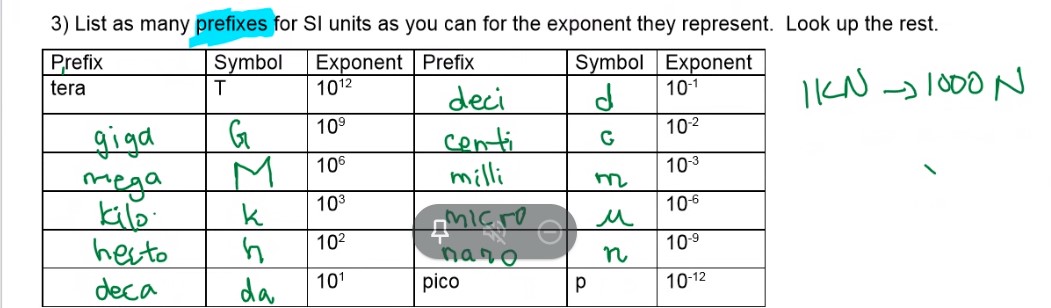 3) List as many prefixes for SI units as you can for the exponent they represent. Look up the rest.
Prefix Symbol Exponent Prefix Symbol Exponent
tera T 10¹² deci d 10⁻¹
giga G 10⁹ centi c 10⁻²
mega M 10⁶ milli m 10⁻³
kilo k 10³ micro μ 10⁻⁶
hecto h 10² nano n 10⁻⁹
deca da 10¹ pico p 10⁻¹²
1KN → 1000 N